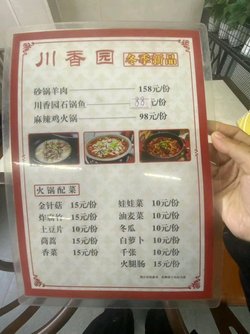 川香园 冬季新品
砂锅羊肉 158元/份
川香园石锅鱼 88元/份
麻辣鸡火锅 98元/份
火锅配菜
金针菇 15元/份 娃娃菜 10元/份
炸腐竹 15元/份 油麦菜 10元/份
土豆片 10元/份 冬瓜 10元/份
茼蒿 15元/份 白萝卜 10元/份
香菜 15元/份 千张 10元/份
火腿肠 15元/份